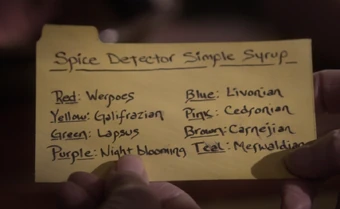 Spice Detector Simple Syrup
Red: Werpoes
Blue: Livonian
Yellow: Galifrazian
Pink: Cedronian
Green: Lapsus
Brown: Carnejian
Purple: Night blooming
Teal: Merwaldian